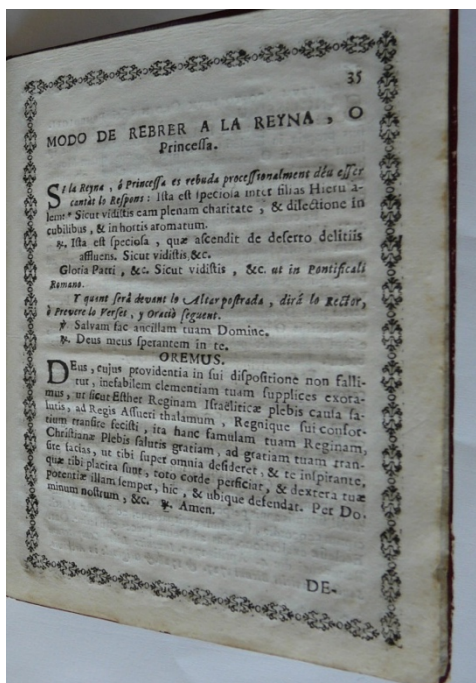 35
MODO DE REBRER A LA REYNA, O
Princeſſa.
Si la Reyna, ó Princeſſa es rebuda proceſſionalment déu eſſer
cantat lo Reſpons: Iſta eſt ſpecioſa inter filias Hieruſa-
lem: * Sicut vidiſtis eam plenam charitate, & dilectione in
cubilibus, & in hortis aromatum.
℣. Iſta eſt ſpecioſa, quæ aſcendit de deſerto delitiis
affluens. Sicut vidiſtis, &c.
Gloria Patri, &c. Sicut vidiſtis, &c. ut in Pontificali
Romano.
Y quant ſerà devant lo Altar poſtrada, dirá lo Rector,
ò Prevere lo Verſet, y Oraciò ſeguent.
℣ Salvam fac ancillam tuam Domine.
℟. Deus meus ſperantem in te.
OREMUS.
Deus, cujus providentia in ſui diſpoſitione non falli-
tur, inefabilem clementiam tuam ſupplices exora-
mus, ut ſicut Eſther Reginam Iſraëliticæ plebis cauſa ſa-
lutis, ad Regis Aſſueri thalamum, Regnique ſui conſor-
tium tranſire feciſti, ita hanc famulam tuam Reginam,
Chriſtianæ Plebis ſalutis gratiam, ad gratiam tuam tran-
ſire facias, ut tibi ſuper omnia deſideret, & te inſpirante,
quæ tibi placita ſunt, toto corde perficiat, & dextera tuæ
potentiæ illam ſemper, hic, & ubique defendat. Per Do-
minum noſtrum, &c. ℟. Amen.
DE-